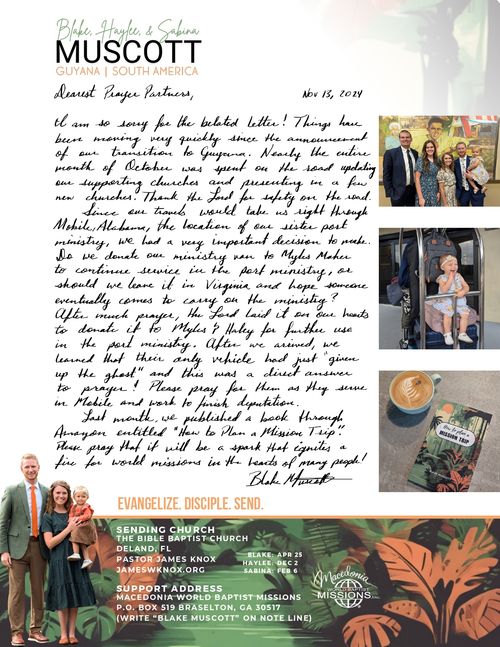 Blake, Haylee, & Sabina
MUSCOTT
GUYANA | SOUTH AMERICA
Dearest Prayer Partners,
Nov 13, 2024
I am so sorry for the belated letter! Things have
been moving very quickly since the announcement
of our transition to Guyana. Nearly the entire
month of October was spent on the road updating
our supporting churches and presenting in a few
new churches. Thank the Lord for safety on the road.
Since our travels would take us right through
Mobile, Alabama, the location of our sister port
ministry, we had a very important decision to make.
Do we donate our ministry van to Myles Maher
to continue service in the port ministry, or
should we leave it in Virginia and hope someone
eventually comes to carry on the ministry?
After much prayer, the Lord laid it on our hearts
to donate it to Myles & Haley for further use
in the port ministry. After we arrived, we
learned that their only vehicle had just "given
up the ghost" and this was a direct answer
to prayer! Please pray for them as they serve
in Mobile and work to finish deputation.
Last month, we published a book through
Amazon entitled "How to Plan a Mission Trip".
Please pray that it will be a spark that ignites a
fire for world missions in the hearts of many people!
Blake Muscott
How to plan a
MISSION TRIP
EVANGELIZE. DISCIPLE. SEND.
SENDING CHURCH
THE BIBLE BAPTIST CHURCH
DELAND, FL
PASTOR JAMES KNOX
JAMESWKNOX.ORG
BLAKE: APR 25
HAYLEE: DEC 2
SABINA: FEB 6
SUPPORT ADDRESS
MACEDONIA WORLD BAPTIST MISSIONS
P.O. BOX 519 BRASELTON, GA 30517
(WRITE "BLAKE MUSCOTT" ON NOTE LINE)
Macedonia
MISSIONS